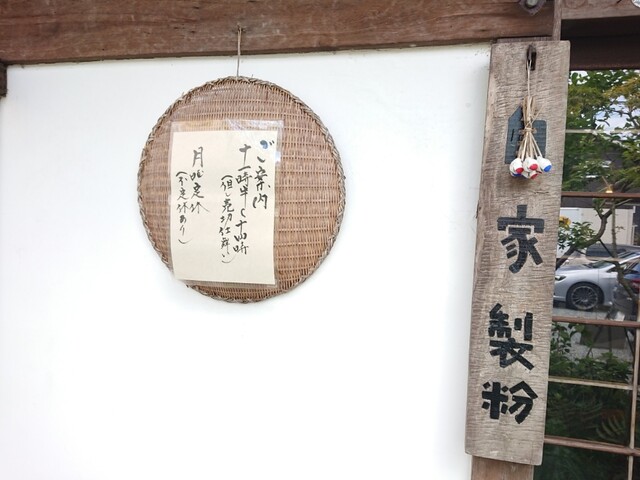 ご案内
十一時半〜十四時
(但し売切仕舞い)
月曜定休
(不定休あり)
自家製粉